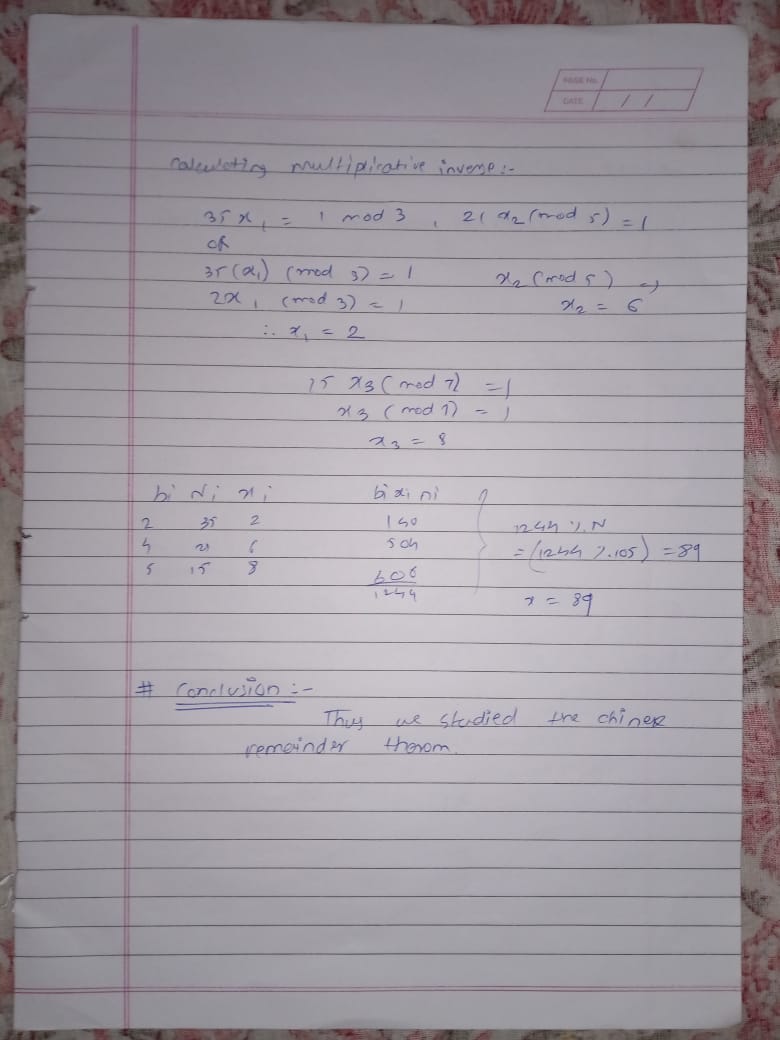 PAGE No.
DATE / /
Calculating multiplicative inverse :-
35 x₁ = 1 mod 3 , 21 x₂ (mod 5) = 1
OR
35(x₁) (mod 3) = 1 x₂ (mod 5) =)
2x₁ (mod 3) = 1 x₂ = 6
∴ x₁ = 2
15 x₃ (mod 7) = 1
x₃ (mod 7) = 1
x₃ = 8
bi Ni xi bi xi ni
2 35 2 140 1244 % N
4 21 6 504 = (1244 % 105) = 89
5 15 8 600
1244 x = 89
# Conclusion :-
Thus we studied the chinese
remainder therom.